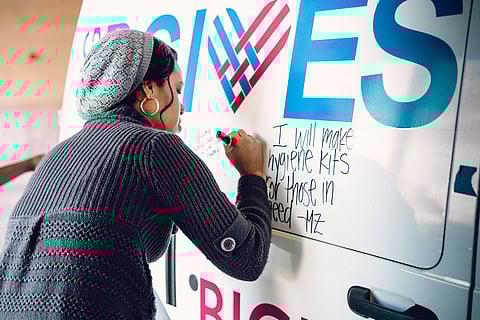 GIVES
I will make
hygiene kits
for those in
need -MZ
BIG